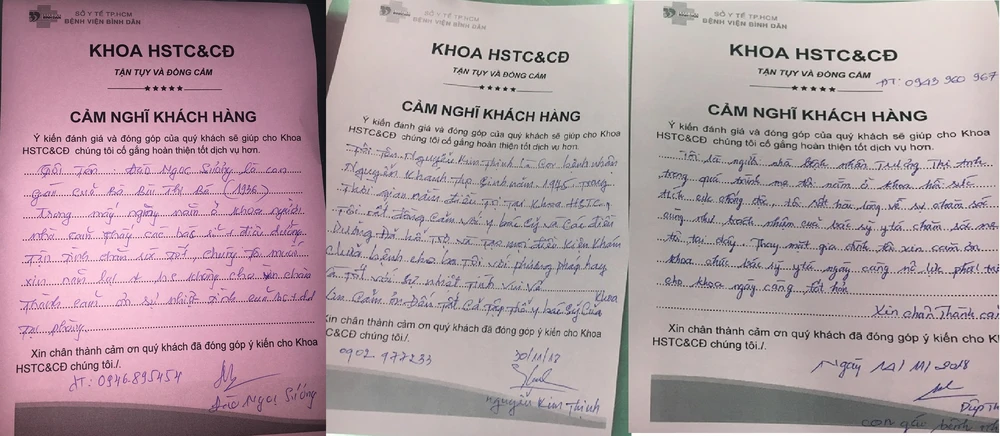 SỞ Y TẾ TP.HCM
BỆNH VIỆN BÌNH DÂN
KHOA HSTC&CĐ
TẬN TỤY VÀ ĐỒNG CẢM
CẢM NGHĨ KHÁCH HÀNG
Ý kiến đánh giá và đóng góp của quý khách sẽ giúp cho Khoa
HSTC&CĐ chúng tôi cố gắng hoàn thiện tốt dịch vụ hơn.
Tôi Tên Đào Ngọc Sương là con
gái của Bà Bùi Thị Bá (1936)
trong mấy ngày nằm ở khoa người
nhà cảm thấy các bác sĩ điều dưỡng
Tận tình chăm sóc tốt chúng tôi
xin chân
Thành cảm ơn sự nhiệt tình của
Tại phòng
Xin chân thành cảm ơn quý khách đã đóng góp ý kiến cho Khoa
HSTC&CĐ chúng tôi./.
ĐT: 0946.895454
Đào Ngọc Sương
SỞ Y TẾ TP.HCM
BỆNH VIỆN BÌNH DÂN
KHOA HSTC&CĐ
TẬN TỤY VÀ ĐỒNG CẢM
CẢM NGHĨ KHÁCH HÀNG
Ý kiến đánh giá và đóng góp của quý khách sẽ giúp cho Khoa
HSTC&CĐ chúng tôi cố gắng hoàn thiện tốt dịch vụ hơn.
Tôi Tên Nguyễn Kim Thịnh là Con bệnh nhân
Nguyễn Khánh Thọ Sinh năm 1945 Trong
Thời gian nằm điều trị tại Khoa HSTC
Tôi rất đồng Cảm với y bác sỹ và Các điều
Dưỡng Đã hỗ trợ và Tạo mọi điều Kiện Khám
Chữa bệnh cho ba Tôi với phương pháp hay
và Tốt với sự nhiệt Tình vui vẻ
Khoa
Xin Cảm ơn Đến Tất Cả Tập Thể y bác Sỹ Của
Xin chân thành cảm ơn quý khách đã đóng góp ý kiến cho Khoa
HSTC&CĐ chúng tôi./.
0902 977233
30/11/18
Nguyễn Kim Thịnh
SỞ Y TẾ TP.HCM
BỆNH VIỆN BÌNH DÂN
KHOA HSTC&CĐ
TẬN TỤY VÀ ĐỒNG CẢM
ĐT: 0943 960 967
CẢM NGHĨ KHÁCH HÀNG
Ý kiến đánh giá và đóng góp của quý khách sẽ giúp cho Khoa
HSTC&CĐ chúng tôi cố gắng hoàn thiện tốt dịch vụ hơn.
Tôi là người nhà bệnh nhân Trương Thị Anh
trong quá trình mẹ tôi nằm ở khoa hồi sức
tích cực chống độc, tôi rất hài lòng về sự chăm sóc
cũng như trách nhiệm của bác sỹ, y tá chăm sóc mẹ
tôi tại đây. Thay mặt gia đình tôi xin cảm ơn
khoa chúc bác sỹ y tá ngày càng nỗ lực phát
cho khoa ngày càng tốt hơn
Xin chân Thành cảm
Xin chân thành cảm ơn quý khách đã đóng góp ý kiến cho K
HSTC&CĐ chúng tôi./.
Ngày 14/11/2018
Điệp
con gái bệnh